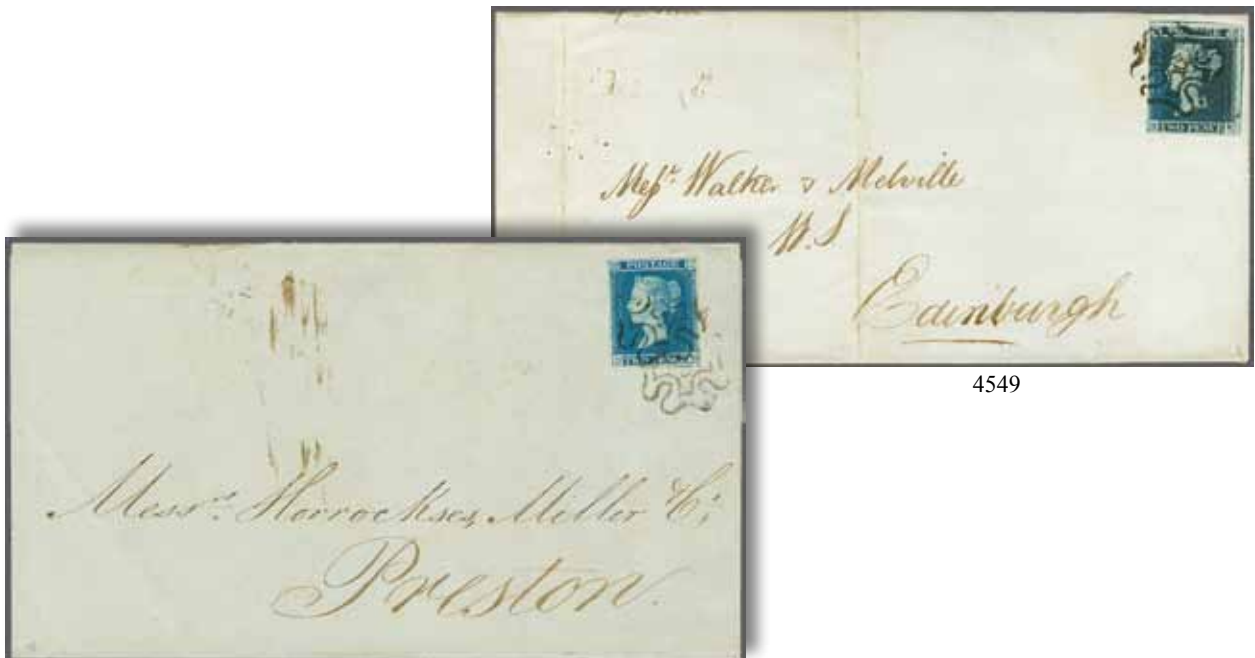 Messrs. Walker & Melville
W.S.
Edinburgh
TWO PENCE
4549
POSTAGE
Messrs. Horrockses, Miller & Co,
Preston.